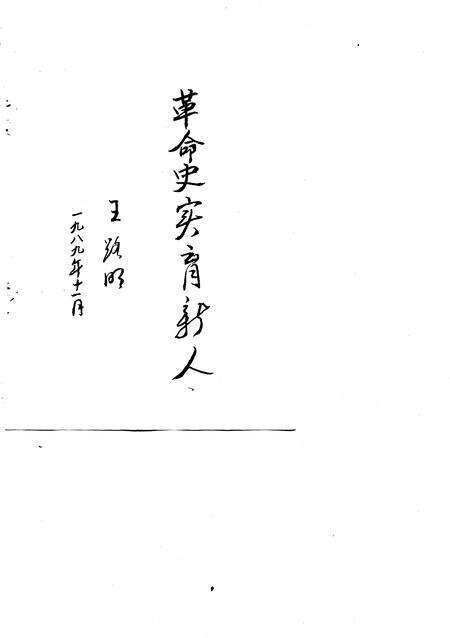 革命史实育新人
王路明
一九八九年十一月